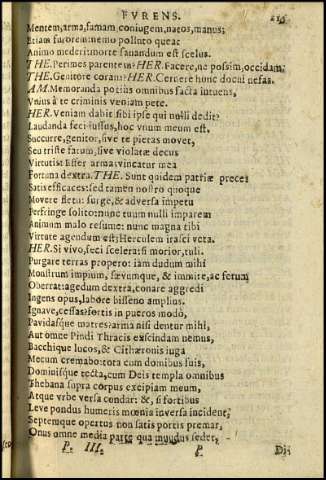 FVRENS.
Mentem, arma, famam coniugem, natos, manus;
Etiam furorem: nemo polluto queat
Animo mederi: morte sanandum est scelus.
THE. Perimes parentem? HER. Facere, ne possim, occidam.
THE. Genitore coram? HER. Cernere hunc docui nefas.
AM. Memoranda potius omnibus facta intuens,
Vnius à te criminis veniam pete.
HER. Veniam dabit sibi ipse qui nulli dedit?
Laudanda feci iussus, hoc vnum meum est.
Succurre, genitor, siue te pietas mouet,
Seu triste fatum, siue violatæ decus
Virtutis: Effer arma: vincatur mea
Fortuna dextra. THE. Sunt quidem patriæ preces
Satis efficaces: sed tamen nostro quoque
Mouere fletu: surge, & aduersa impetu
Perfringe solito: nunc tuum nulli imparem
Animum malo resume: nunc magna tibi
Virtute agendum est; Herculem irasci veta.
HER. Si viuo, feci scelera: si morior, tuli.
Purgare terras propero: iam dudum mihi
Monstrum impium, sæuumque, & immite, ac ferum
Oberrat: agedum dextra, conare aggredi
Ingens opus, labore bisseno amplius.
Ignaue, cessas? fortis in pueros modò,
Pauidasque matres? arma nisi dentur mihi,
Aut omne Pindi Thracis exscindam nemus,
Bacchique lucos, & Cithæronis iuga
Mecum cremabo: tota cum domibus suis,
Dominisque tecta, cum Deis templa omnibus
Thebana supra corpus excipiam meum,
Atque vrbe versa condar: &, si fortibus
Leue pondus humeris mœnia inuersa incident,
Septemque opertus non satis portis premar,
Onus omne media parte qua mundus sedet,
P. III. P. Di-